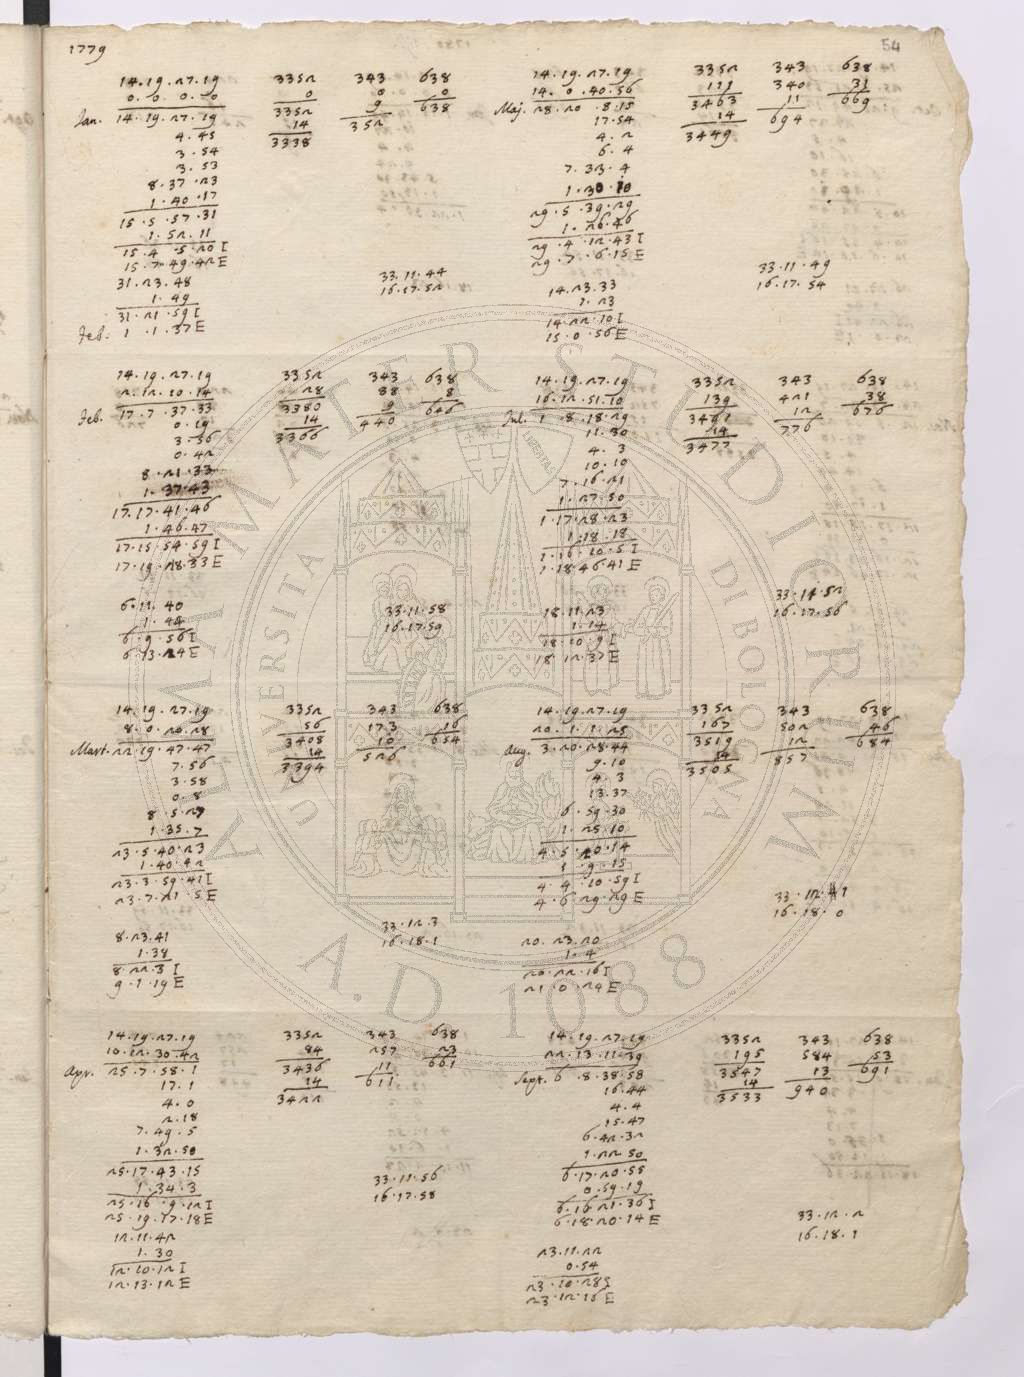 1779
54
14.19.27.19 3352 343 638
0.0.0.0 0 0 0
Jan. 14.19.27.19 3352 9 638
4.45 14 352
3.54 3338
3.53
8.37.23
1.40.17
15.5.57.31
1.52.11
15.4.5.20 I
15.7.49.42 E
31.23.48 33.11.44
1.49 16.17.52
31.21.59 I
Feb: 1.1.37 E
14.19.27.19 3352 343 638
2.12.10.14 28 88 8
Feb. 17.7.37.33 3380 9 646
0.19 14 440
3.56 3366
0.42
8.21.33
1.37.43
17.17.41.46
1.46.47
17.15.54.59 I
17.19.28.33 E
6.11.40 33.11.58
1.44 16.17.59
6.9.56 I
6.13.24 E
14.19.27.19 3352 343 638
8.0.20.28 56 173 16
Mart. 22.19.47.47 3408 10 654
7.56 14 526
3.58 3394
0.8
8.5.27
1.35.7
23.5.40.23
1.40.42
23.3.59.41 I
23.7.21.5 E
8.23.41 33.12.3
1.38 16.18.1
8.22.3 I
9.1.19 E
14.19.27.19 3352 343 638
10.12.30.42 84 257 23
Apr. 25.7.58.1 3436 11 661
17.1 14 611
4.0 3422
2.18
7.49.5
1.32.50
25.17.43.15
1.34.3
25.16.9.12 I
25.19.17.18 E
12.11.42 33.11.56
1.30 16.17.58
12.10.12 I
12.13.12 E
14.19.27.19 3352 343 638
14.0.40.56 111 340 31
Maj. 28.20.8.15 3463 11 669
17.54 14 694
4.2 3449
6.4
7.33.4
1.30.10
29.5.39.29
1.26.46
29.4.12.43 I
29.7.6.15 E
14.23.33 33.11.49
1.23 16.17.54
14.22.10 I
15.0.56 E
14.19.27.19 3352 343 638
16.12.51.10 139 421 38
Jul. 1.8.18.29 3491 12 676
11.30 14 776
4.3 3477
10.10
7.16.21
1.27.50
1.17.28.23
1.18.18
1.16.10.5 I
1.18.46.41 E
18.11.23 33.11.52
1.14 16.17.56
18.10.9 I
18.12.37 E
14.19.27.19 3352 343 638
20.1.1.25 167 502 46
Aug. 3.20.28.44 3519 12 684
9.10 14 857
4.3 3505
13.37
6.59.30
1.25.10
4.5.20.14
1.9.15
4.4.10.59 I
4.6.29.29 E
20.23.20 33.12.41
1.4 16.18.0
20.22.16 I
21.0.24 E
14.19.27.19 3352 343 638
22.13.11.39 195 584 53
Sept. 6.8.38.58 3547 13 691
16.44 14 940
4.4 3533
15.47
6.42.32
1.22.50
6.17.20.55
0.59.19
6.16.21.36 I
6.18.20.14 E
23.11.22 33.12.2
0.54 16.18.1
23.10.28 I
23.12.16 E
ALMA MATER STUDIORUM
UNIVERSITA DI BOLOGNA
A.D. 1088